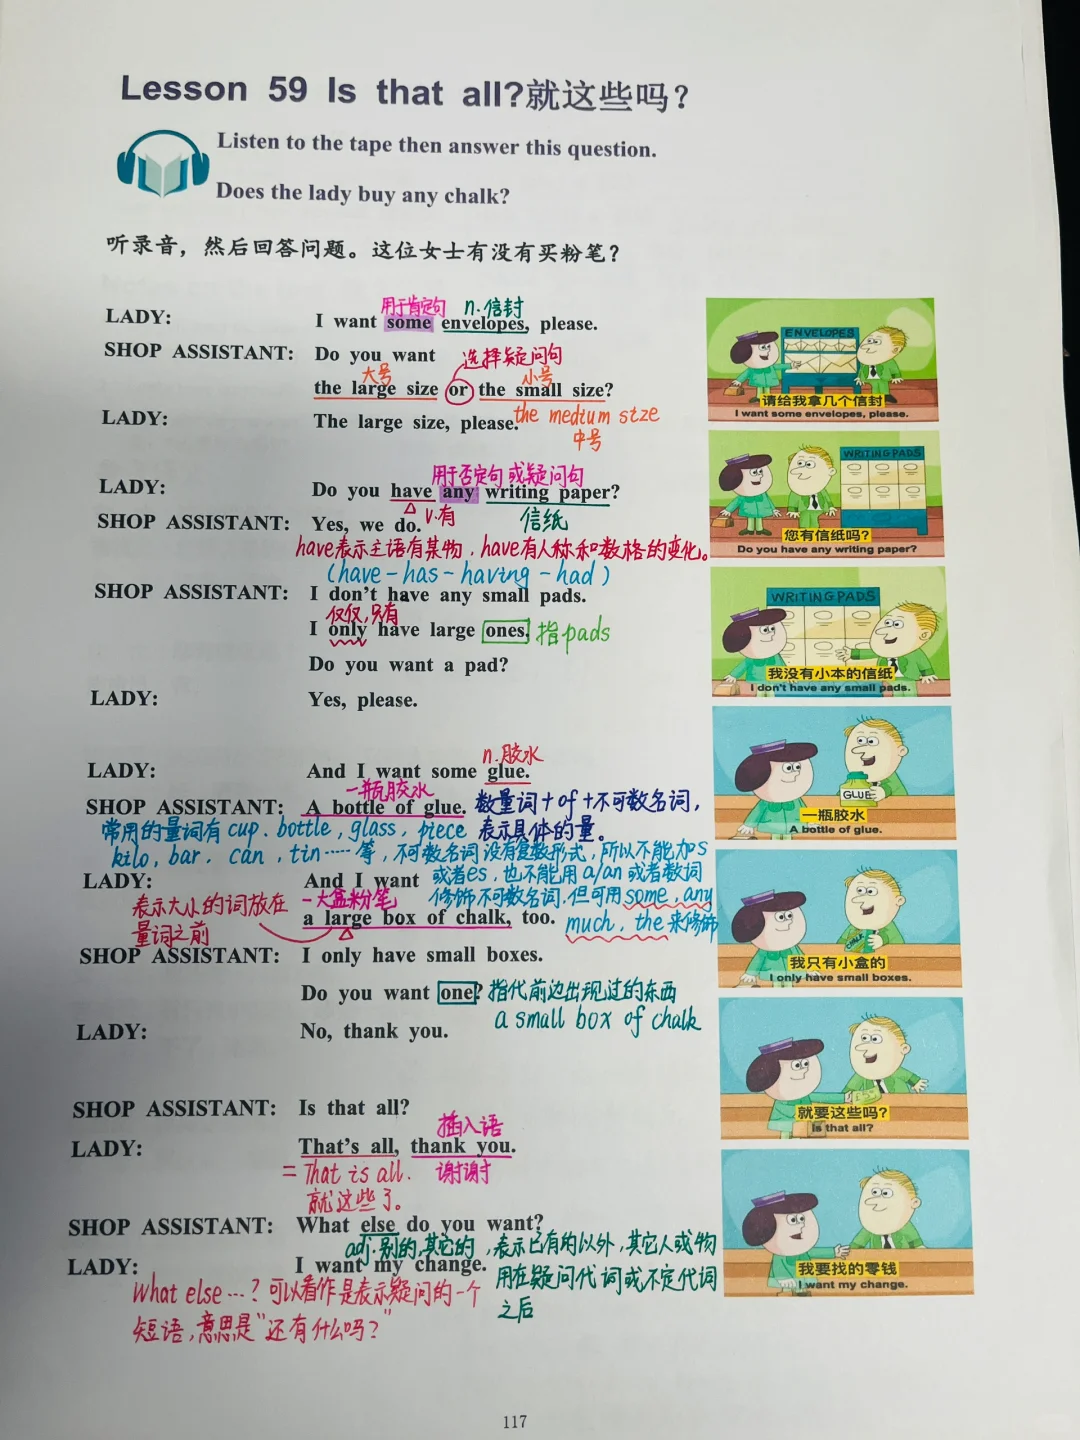 Lesson 59 Is that all?就这些吗?
Listen to the tape then answer this question.
Does the lady buy any chalk?
听录音，然后回答问题。这位女士有没有买粉笔?
用于肯定句 n.信封
LADY: I want some envelopes, please.
SHOP ASSISTANT: Do you want 选择疑问句
大号 小号
the large size or the small size?
LADY: The large size, please. the medium stze
中号
用于否定句或疑问句
LADY: Do you have any writing paper?
SHOP ASSISTANT: Yes, we do. v.有 信纸
have表示主语有某物，have有人称和数格的变化。
(have-has-having-had)
SHOP ASSISTANT: I don't have any small pads.
仅仅,只有
I only have large ones, 指pads
Do you want a pad?
LADY: Yes, please.
n.胶水
LADY: And I want some glue.
一瓶胶水
SHOP ASSISTANT: A bottle of glue. 数量词+of+不可数名词，
常用的量词有 cup. bottle, glass, piece 表示具体的量。
kilo, bar. can, tin……等，不可数名词没有复数形式，所以不能加s
LADY: And I want 或者es, 也不能用a/an或者数词
表示大小的词放在 一大盒粉笔 修饰不可数名词.但可用some. any
量词之前 a large box of chalk, too. much, the 来修饰
SHOP ASSISTANT: I only have small boxes.
Do you want one? 指代前边出现过的东西
a small box of chalk
LADY: No, thank you.
SHOP ASSISTANT: Is that all?
插入语
LADY: That's all, thank you.
= That is all. 谢谢
就这些了。
SHOP ASSISTANT: What else do you want?
adj.别的,其它的，表示已有的以外，其它人或物
LADY: I want my change. 用在疑问代词或不定代词
之后
What else…? 可以看作是表示疑问的一个
短语,意思是"还有什么吗?"
ENVELOPES
请给我拿几个信封
I want some envelopes, please.
WRITING PADS
您有信纸吗?
Do you have any writing paper?
WRITING PADS
我没有小本的信纸
I don't have any small pads.
GLUE
一瓶胶水
A bottle of glue.
CHALK
我只有小盒的
I only have small boxes.
就要这些吗?
Is that all?
我要找的零钱
I want my change.
117